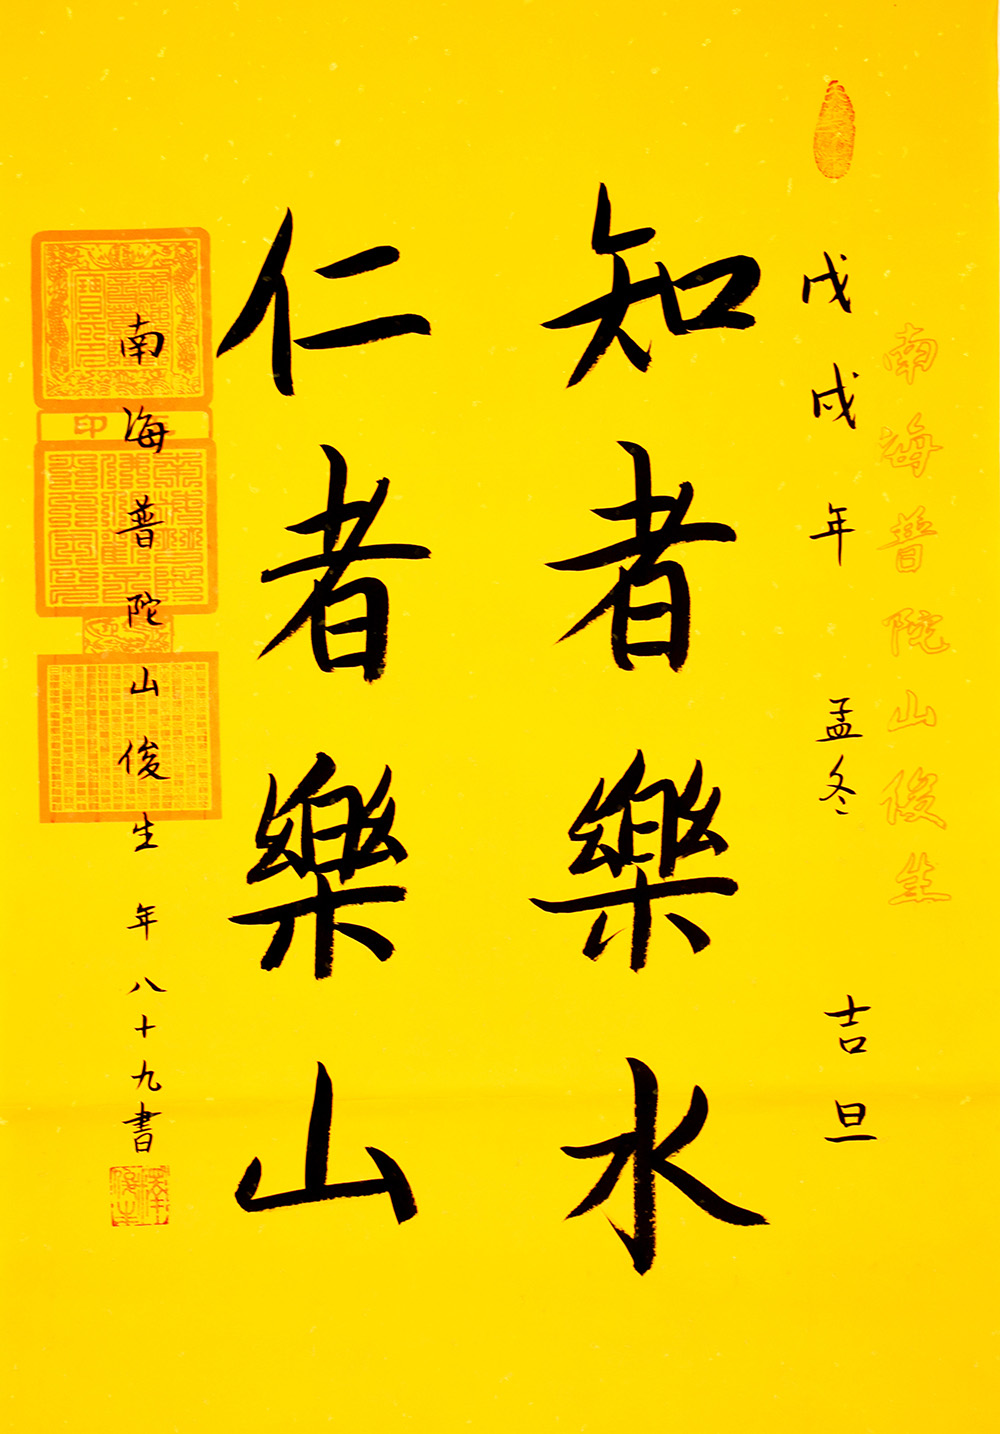 南海普陀山俊生
戊戌年 孟冬 吉旦
知者樂水
仁者樂山
南海普陀山俊生年八十九書
印